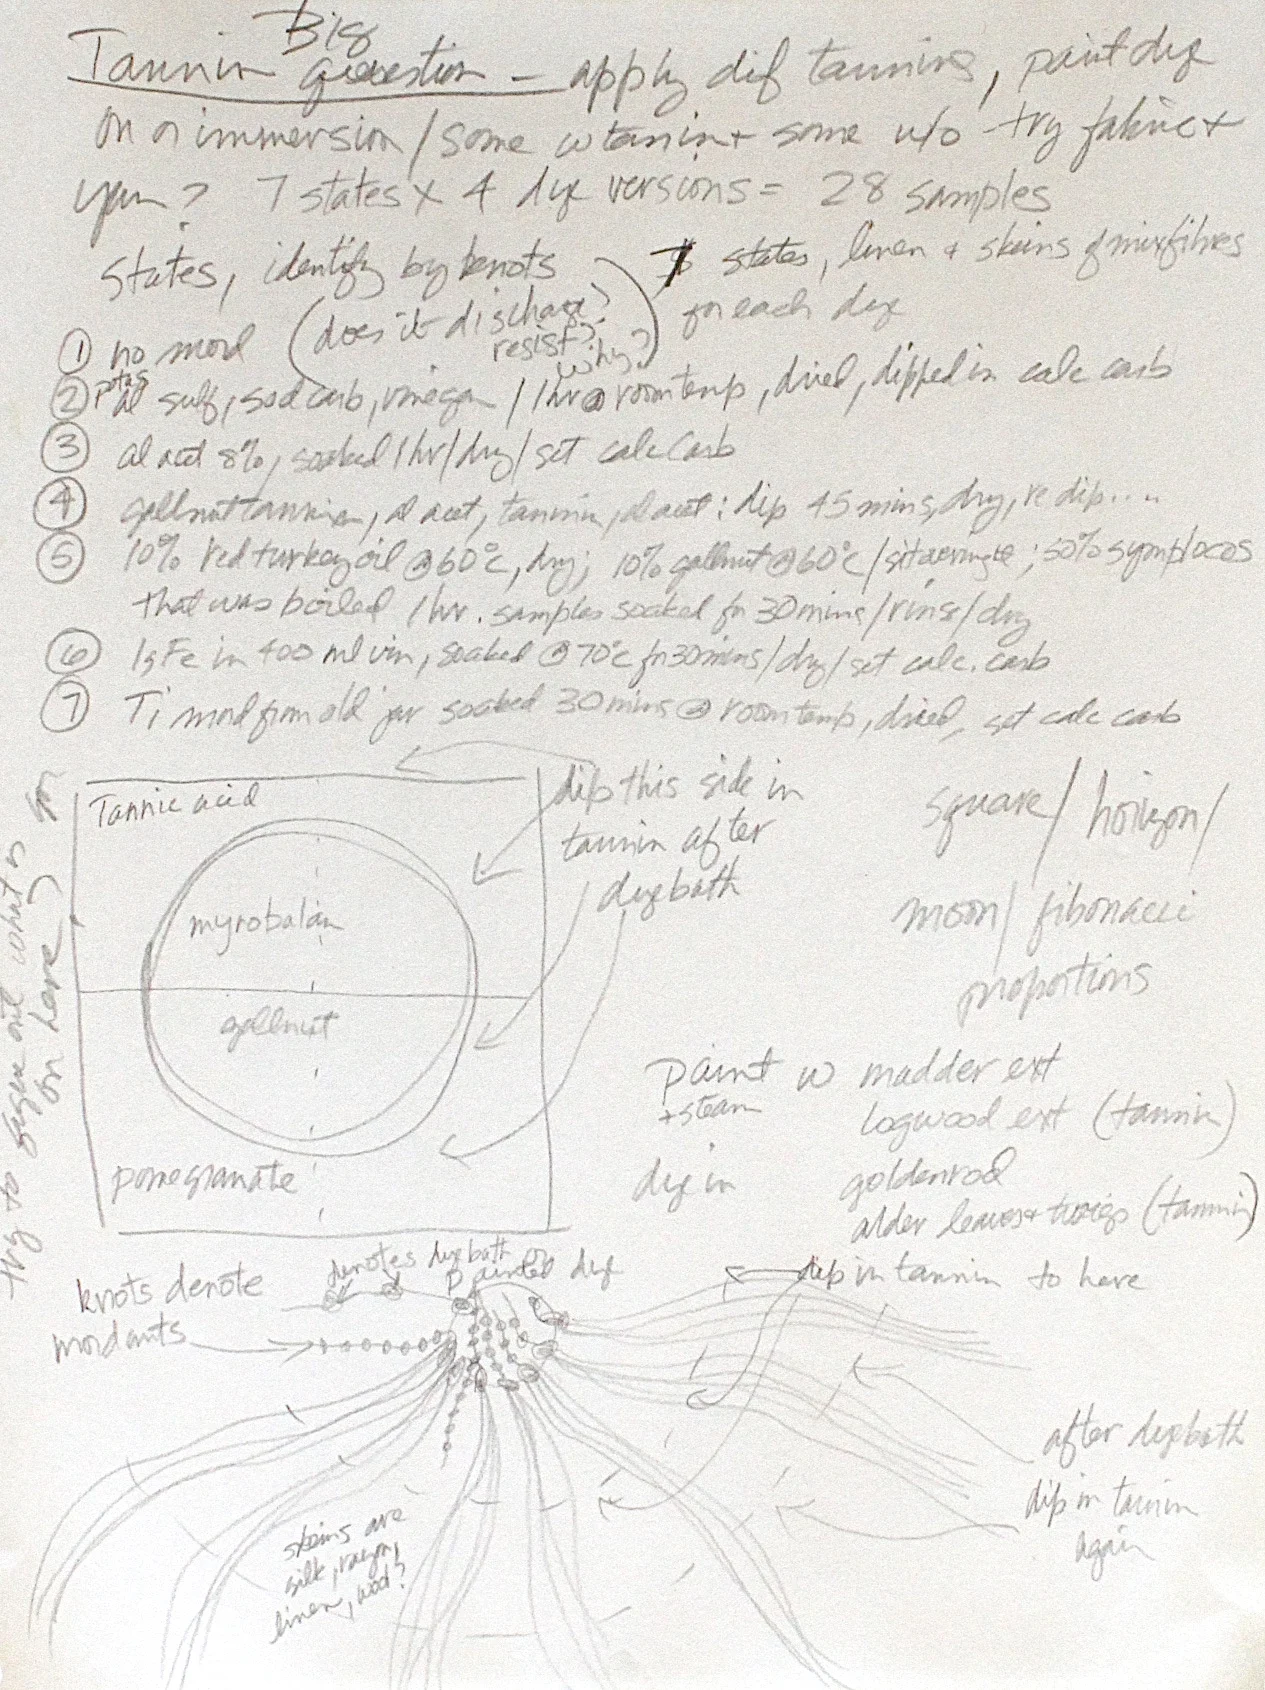 Big
Tannin Question - apply dif tannins, paint dye
on or immersion / some w tanin + some w/o try fabric +
yarn? 7 states x 4 dye versions = 28 samples
states, identify by knots
7 states, linen + skeins of mix fibres
for each dye
(does it discharge?
resist?
why?)
① no mord
② potas al sulf, sod carb, vinegar / 1 hr @ room temp, dried, dipped in calc carb
③ al acet 8%, soaked 1 hr / dry / set calc carb
④ gallnut tannin, al acet, tannin, al acet: dip 45 mins, dry, re dip....
⑤ 10% red turkey oil @ 60°C, dry; 10% gallnut @ 60°C / sit overnite; 50% symplocos
that was boiled 1 hr. samples soaked for 30 mins / rinse / dry
⑥ 1g Fe in 400 ml vin, soaked @ 70°C for 30 mins / dry / set calc. carb
⑦ Ti mord from old jar soaked 30 mins @ room temp, dried, set calc carb
Tannic acid
myrobalan
gallnut
pomegranate
dip this side in
tannin after
dyebath
square / horizon /
moon / fibonacci
proportions
try to figure out what is
on here
paint w madder ext
+ steam
logwood ext (tannin)
dye in goldenrod
alder leaves + twigs (tannin)
knots denote
mordants
denotes dyebath or
painted dye
dip in tannin to here
after dyebath
dip in tannin
again
skeins are
silk, rayon,
linen, wool?